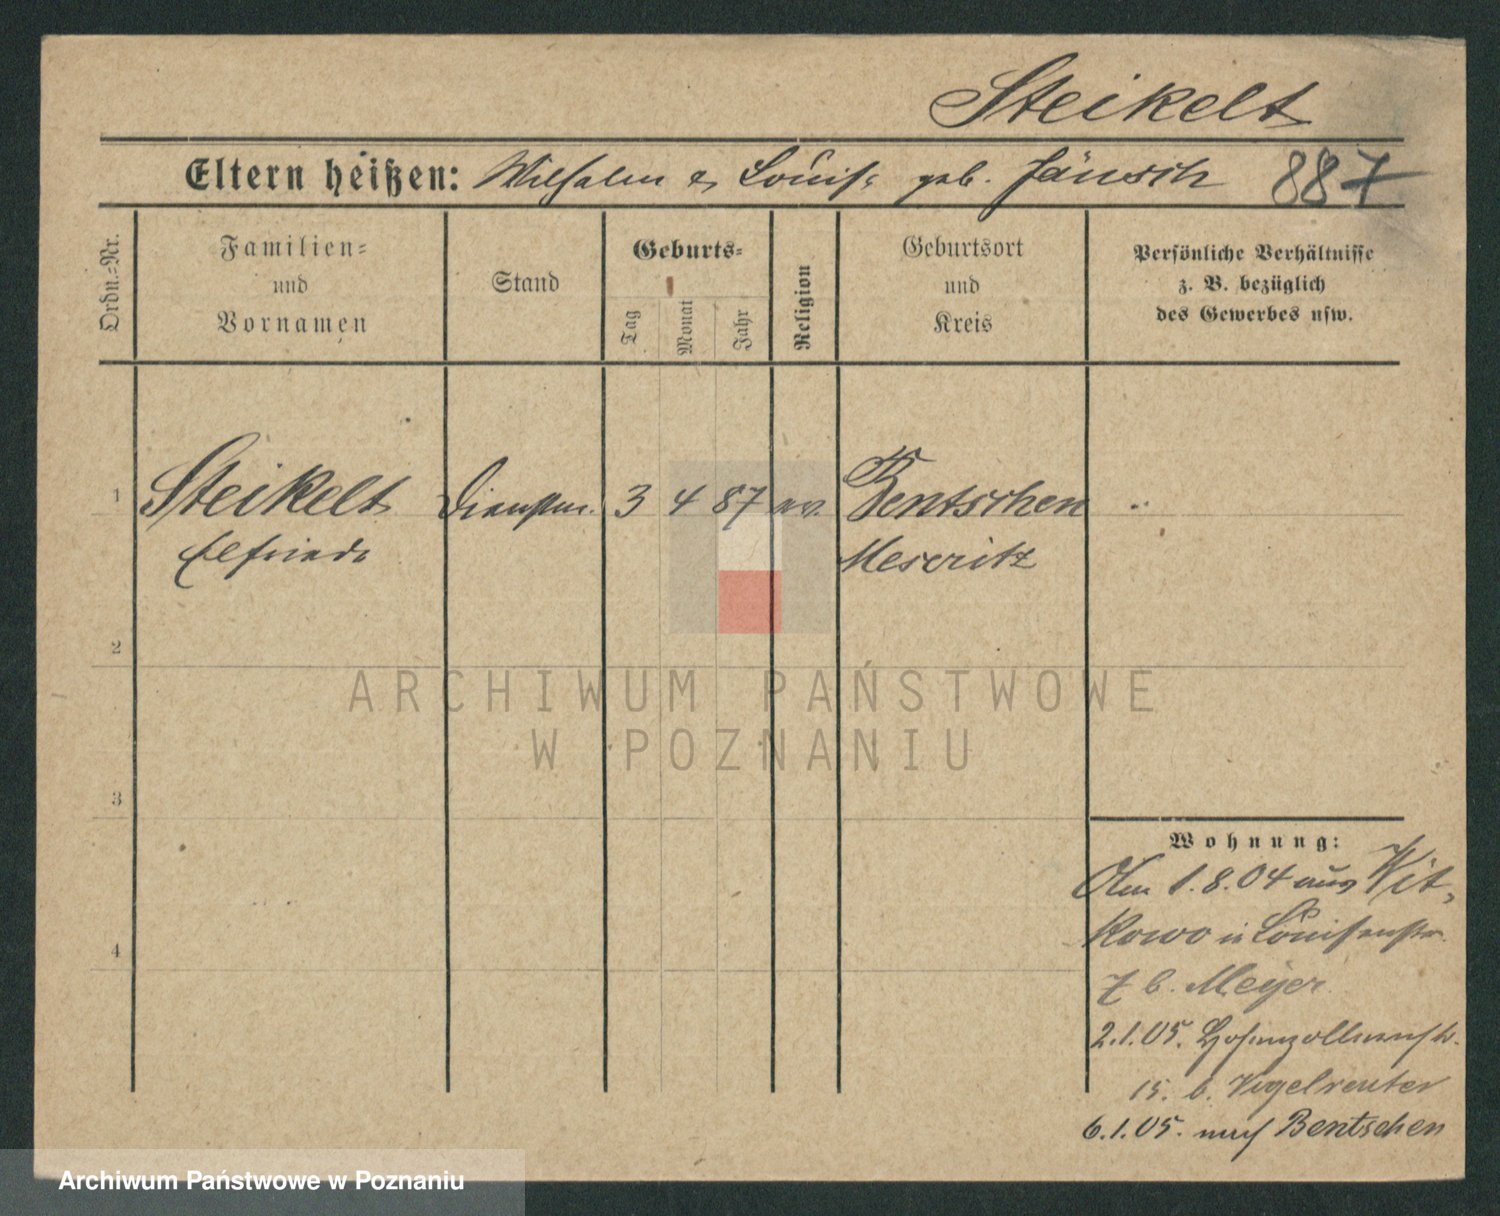 Steikelt
Eltern heißen: Wilhelm u. Louise geb. Jänsch 887
Ordn.=Nr.
Familien=
und
Vornamen
Stand
Geburts=
Tag
Monat
Jahr
Religion
Geburtsort
und
Kreis
Persönliche Verhältnisse
z. B. bezüglich
des Gewerbes usw.
1 Steikelt Dienstm. 3 4 87 ev. Bentschen
Elfriede Meseritz
2
3
4
Wohnung:
Am 1.8.04 aus Wit-
kowo in Louisenstr.
7 b. Meyer
2.1.05. Hohenzollernstr.
15. b. Vogelreuter
6.1.05. nach Bentschen
ARCHIWUM PAŃSTWOWE
W POZNANIU
Archiwum Państwowe w Poznaniu